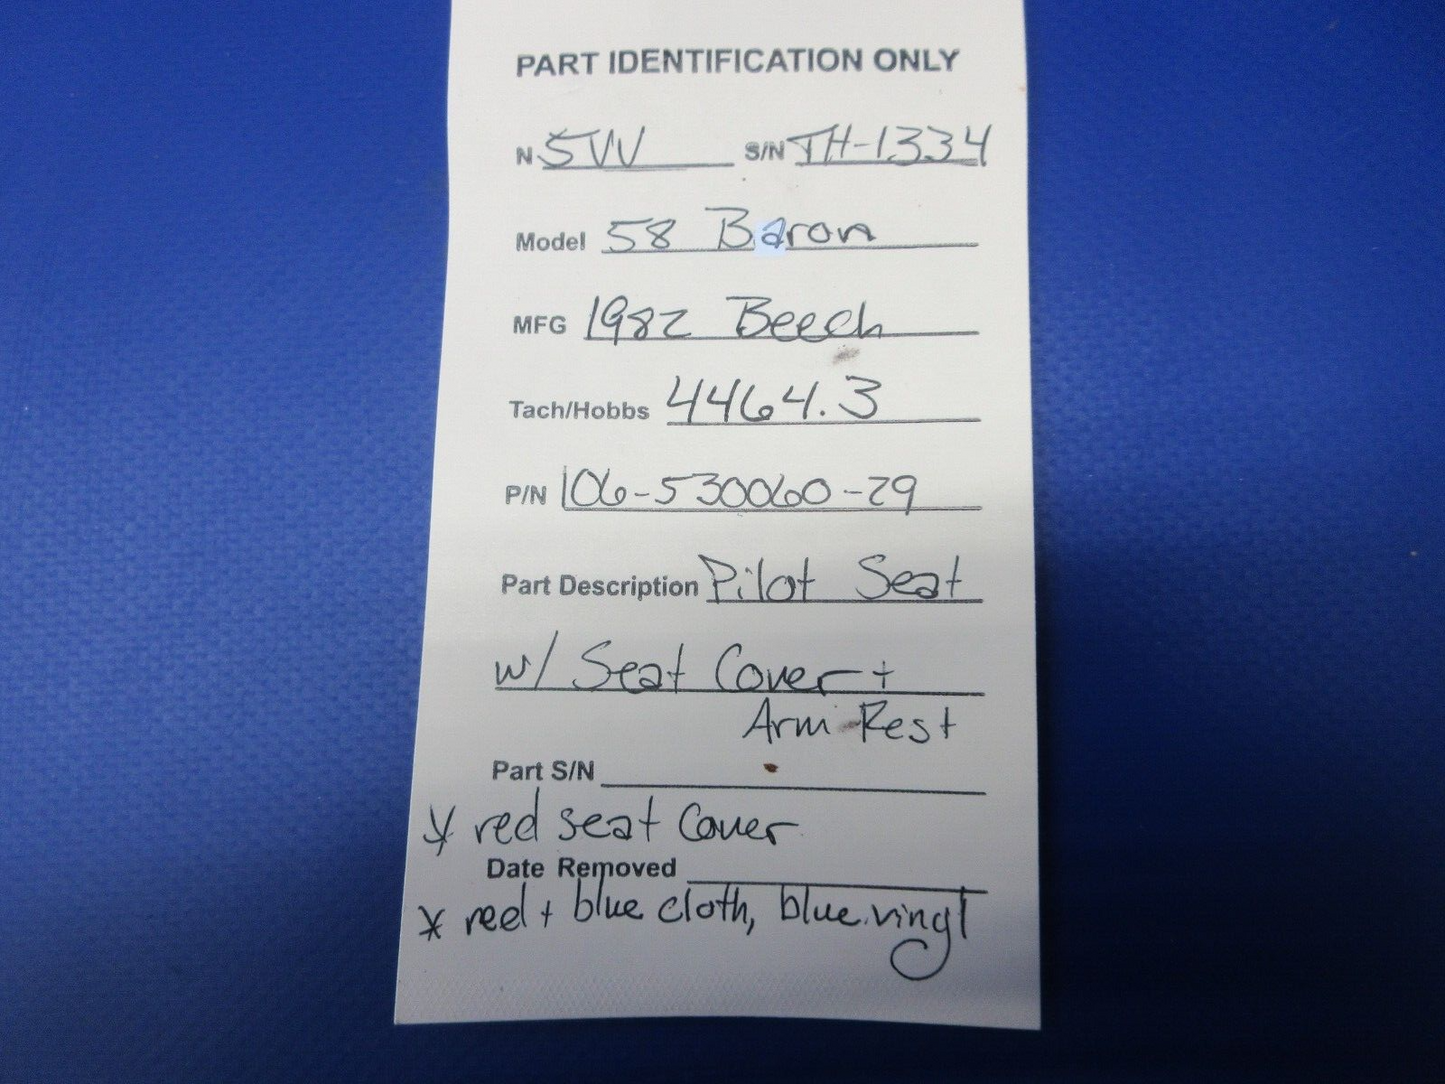 PART IDENTIFICATION ONLY
N 5VV S/N TH-1334
Model 58 Baron
MFG 1982 Beech
Tach/Hobbs 4464.3
P/N 106-530060-29
Part Description Pilot Seat
w/ Seat Cover +
Arm Rest
Part S/N
* red seat Cover
Date Removed
* red + blue cloth, blue vinyl